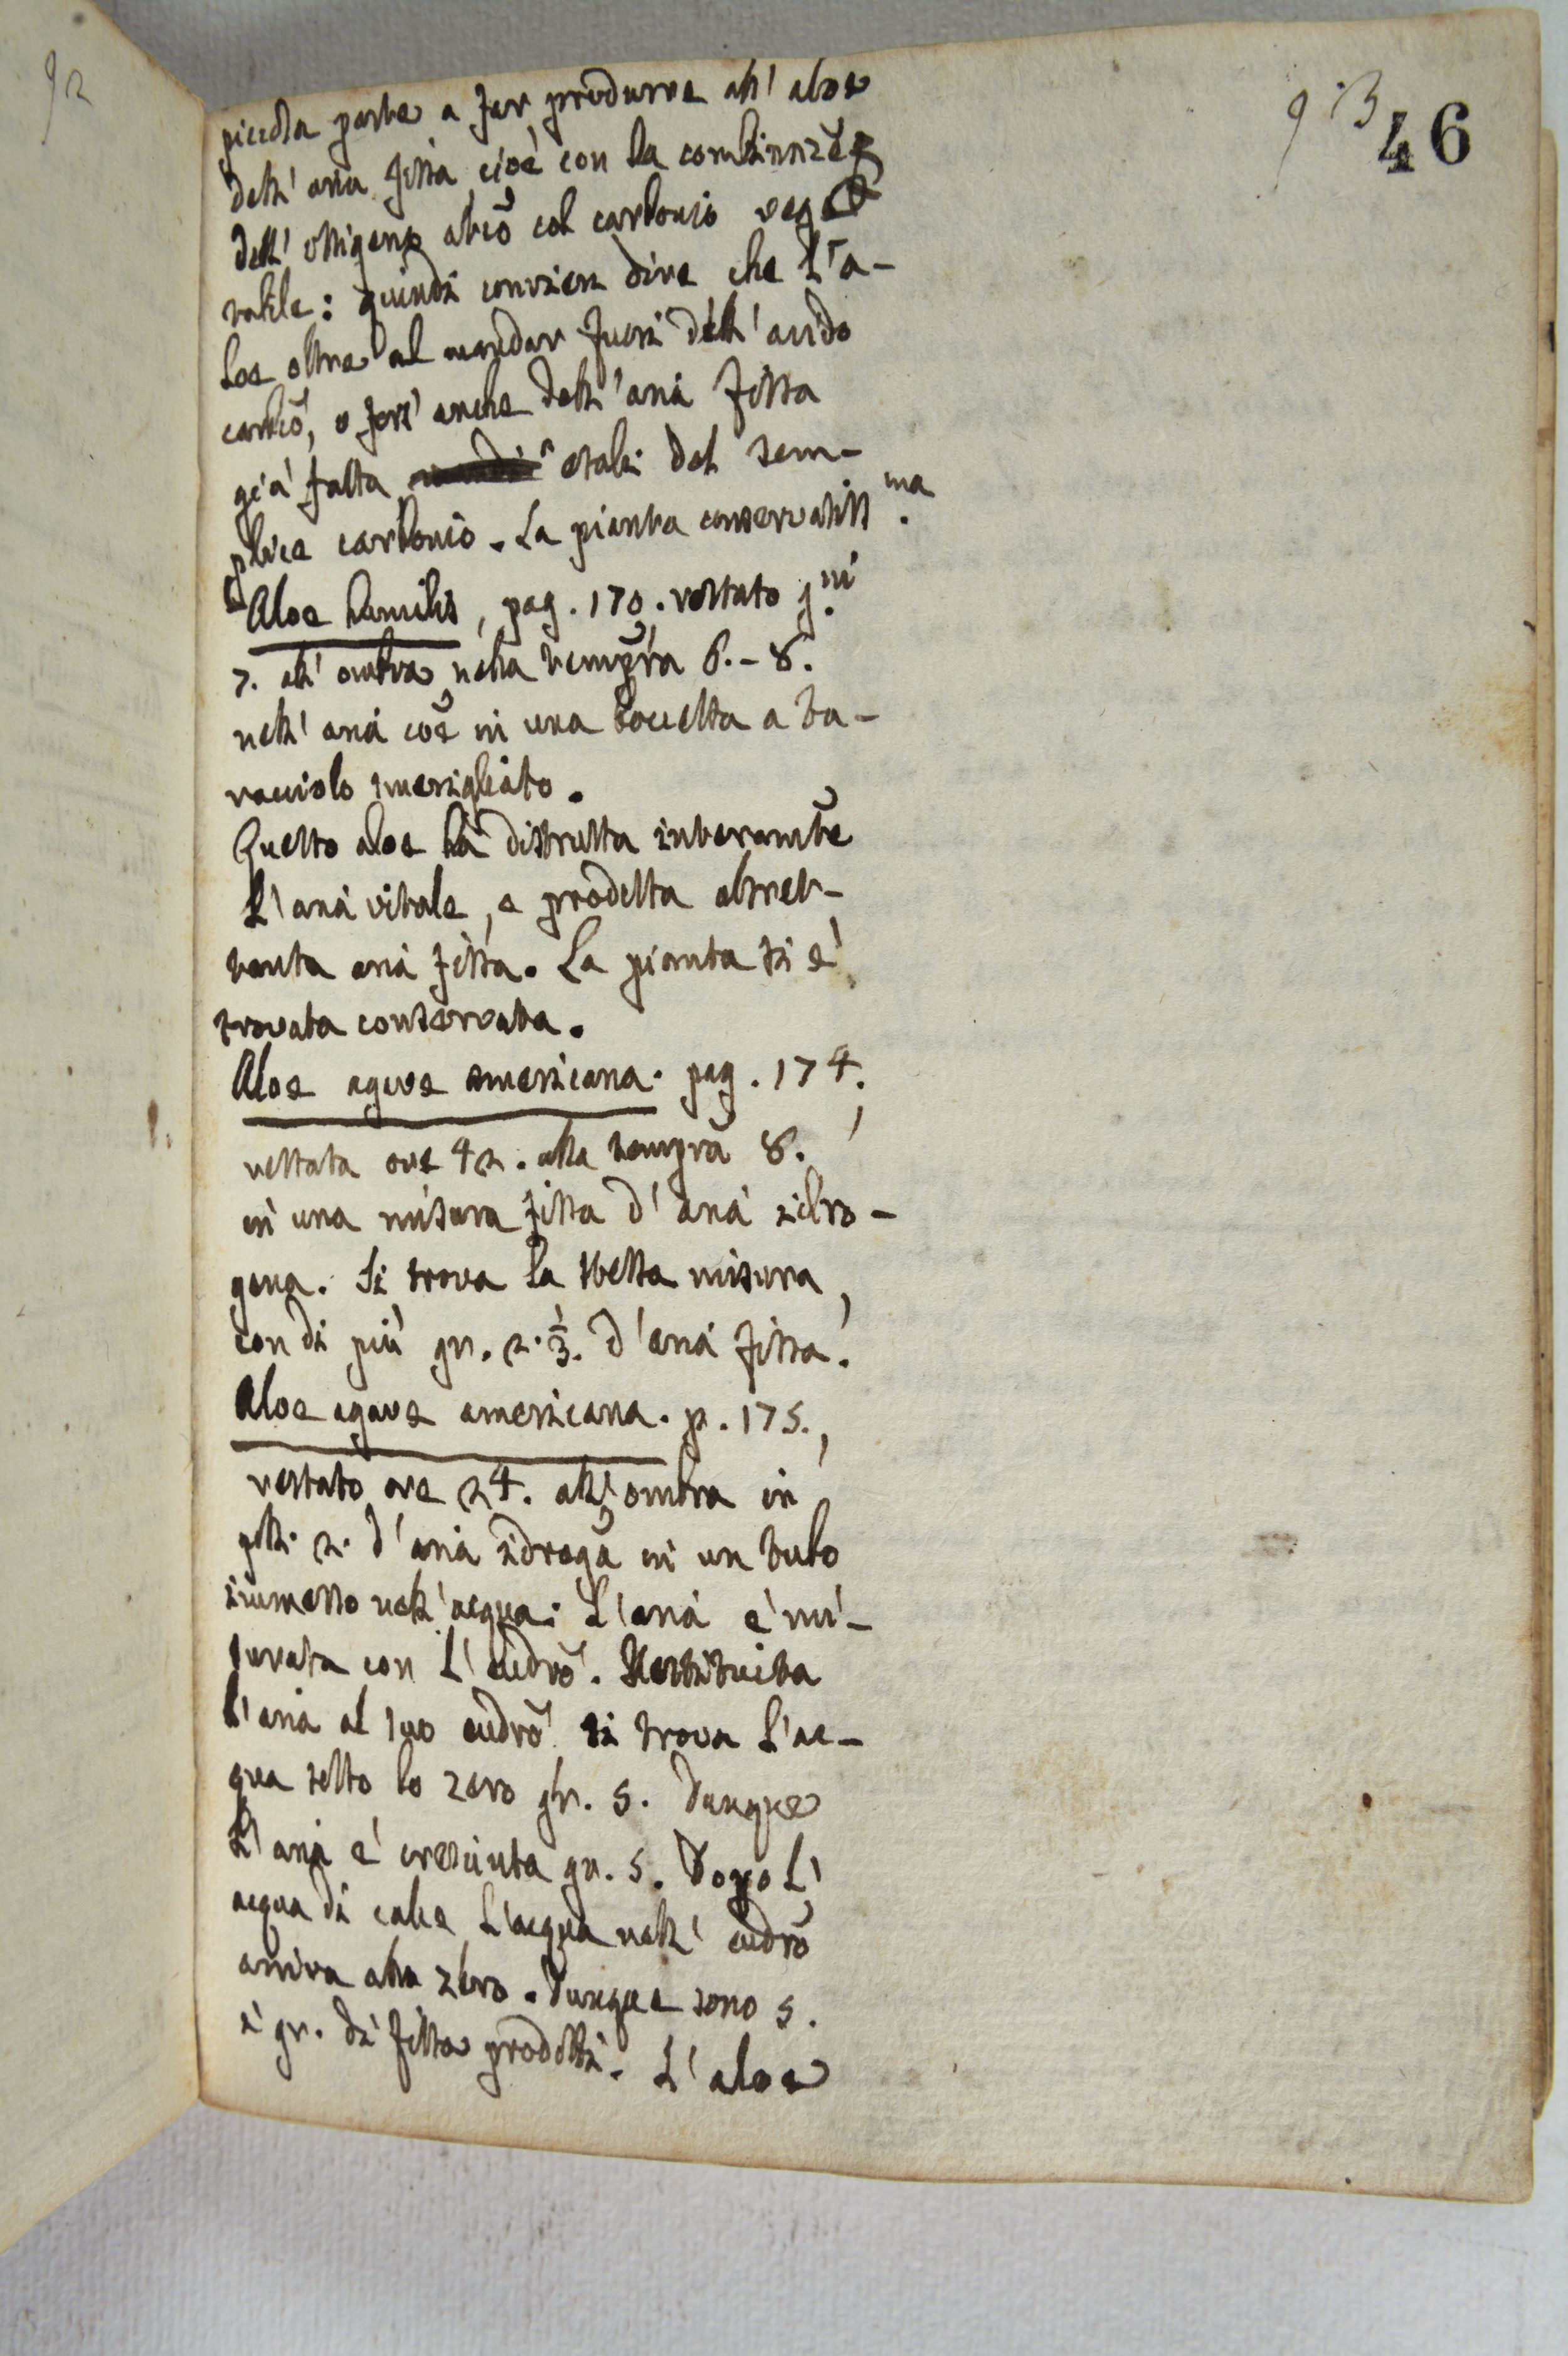 92
93
46
piccola parte a far produrre all' aloe
dell' aria fissa, cioè con la combinnzẽ
dell' ossigeno atm̃co col carbonio veg
tabile: quindi convien dire che l'a-
loe oltre al mandar fuori dell' acido
carbco, o fors' anche dell' aria fissa
già fatta esali del sem-
plice carbonio. La pianta conservatiss.ma
Aloe humilis, pag. 170. restato g.ni
7. all' ombra nella tempr̃a 6.-8.
nell' aria coẽ in una boccetta a tu-
racciolo smerigliato.
Questo aloe ha distrutta interamte
l'aria vitale, e prodotta altret-
tanta aria fissa. La pianta si è
trovata conservata.
Aloe agave americana. pag. 174.,
restata ore 42. alla temprã 8.
in una misura fissa d' aria idro-
gena. Si trova la stessa misura,
con di più gr. 2. 1/3. d'aria fissa.
Aloe agave americana. p. 175.,
restato ore 24. all' ombra in
poll. 2. d'aria idrogã in un tubo
immerso nell' acqua: L'aria è mi-
surata con l' eudrõ. Restituita
l'aria al suo eudrõ si trova l'ac-
qua sotto lo zero gr. 5. Dunque
l'aria è cresciuta gr. 5. Dopo l'
acqua di calce l'acqua nell' eudrõ
arriva allo zero. Dunque sono 5.
i gr. di fissa prodotti. L'aloe